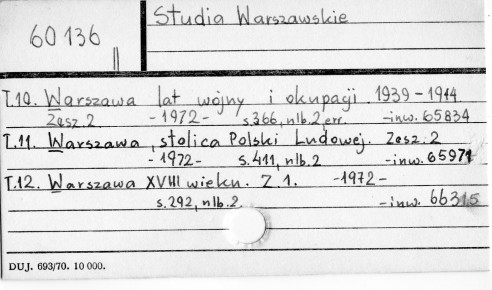 60136
||
Studia Warszawskie
T.10. Warszawa lat wojny i okupacji 1939-1944
Zesz. 2 -1972- s.366, nlb.2, err. -inw. 65834
T.11. Warszawa, stolica Polski Ludowej. Zesz. 2
-1972- s.411, nlb.2 -inw. 65971
T.12. Warszawa XVIII wieku. Z 1. -1972-
s.292, nlb.2. -inw. 66315
DUJ. 693/70. 10 000.